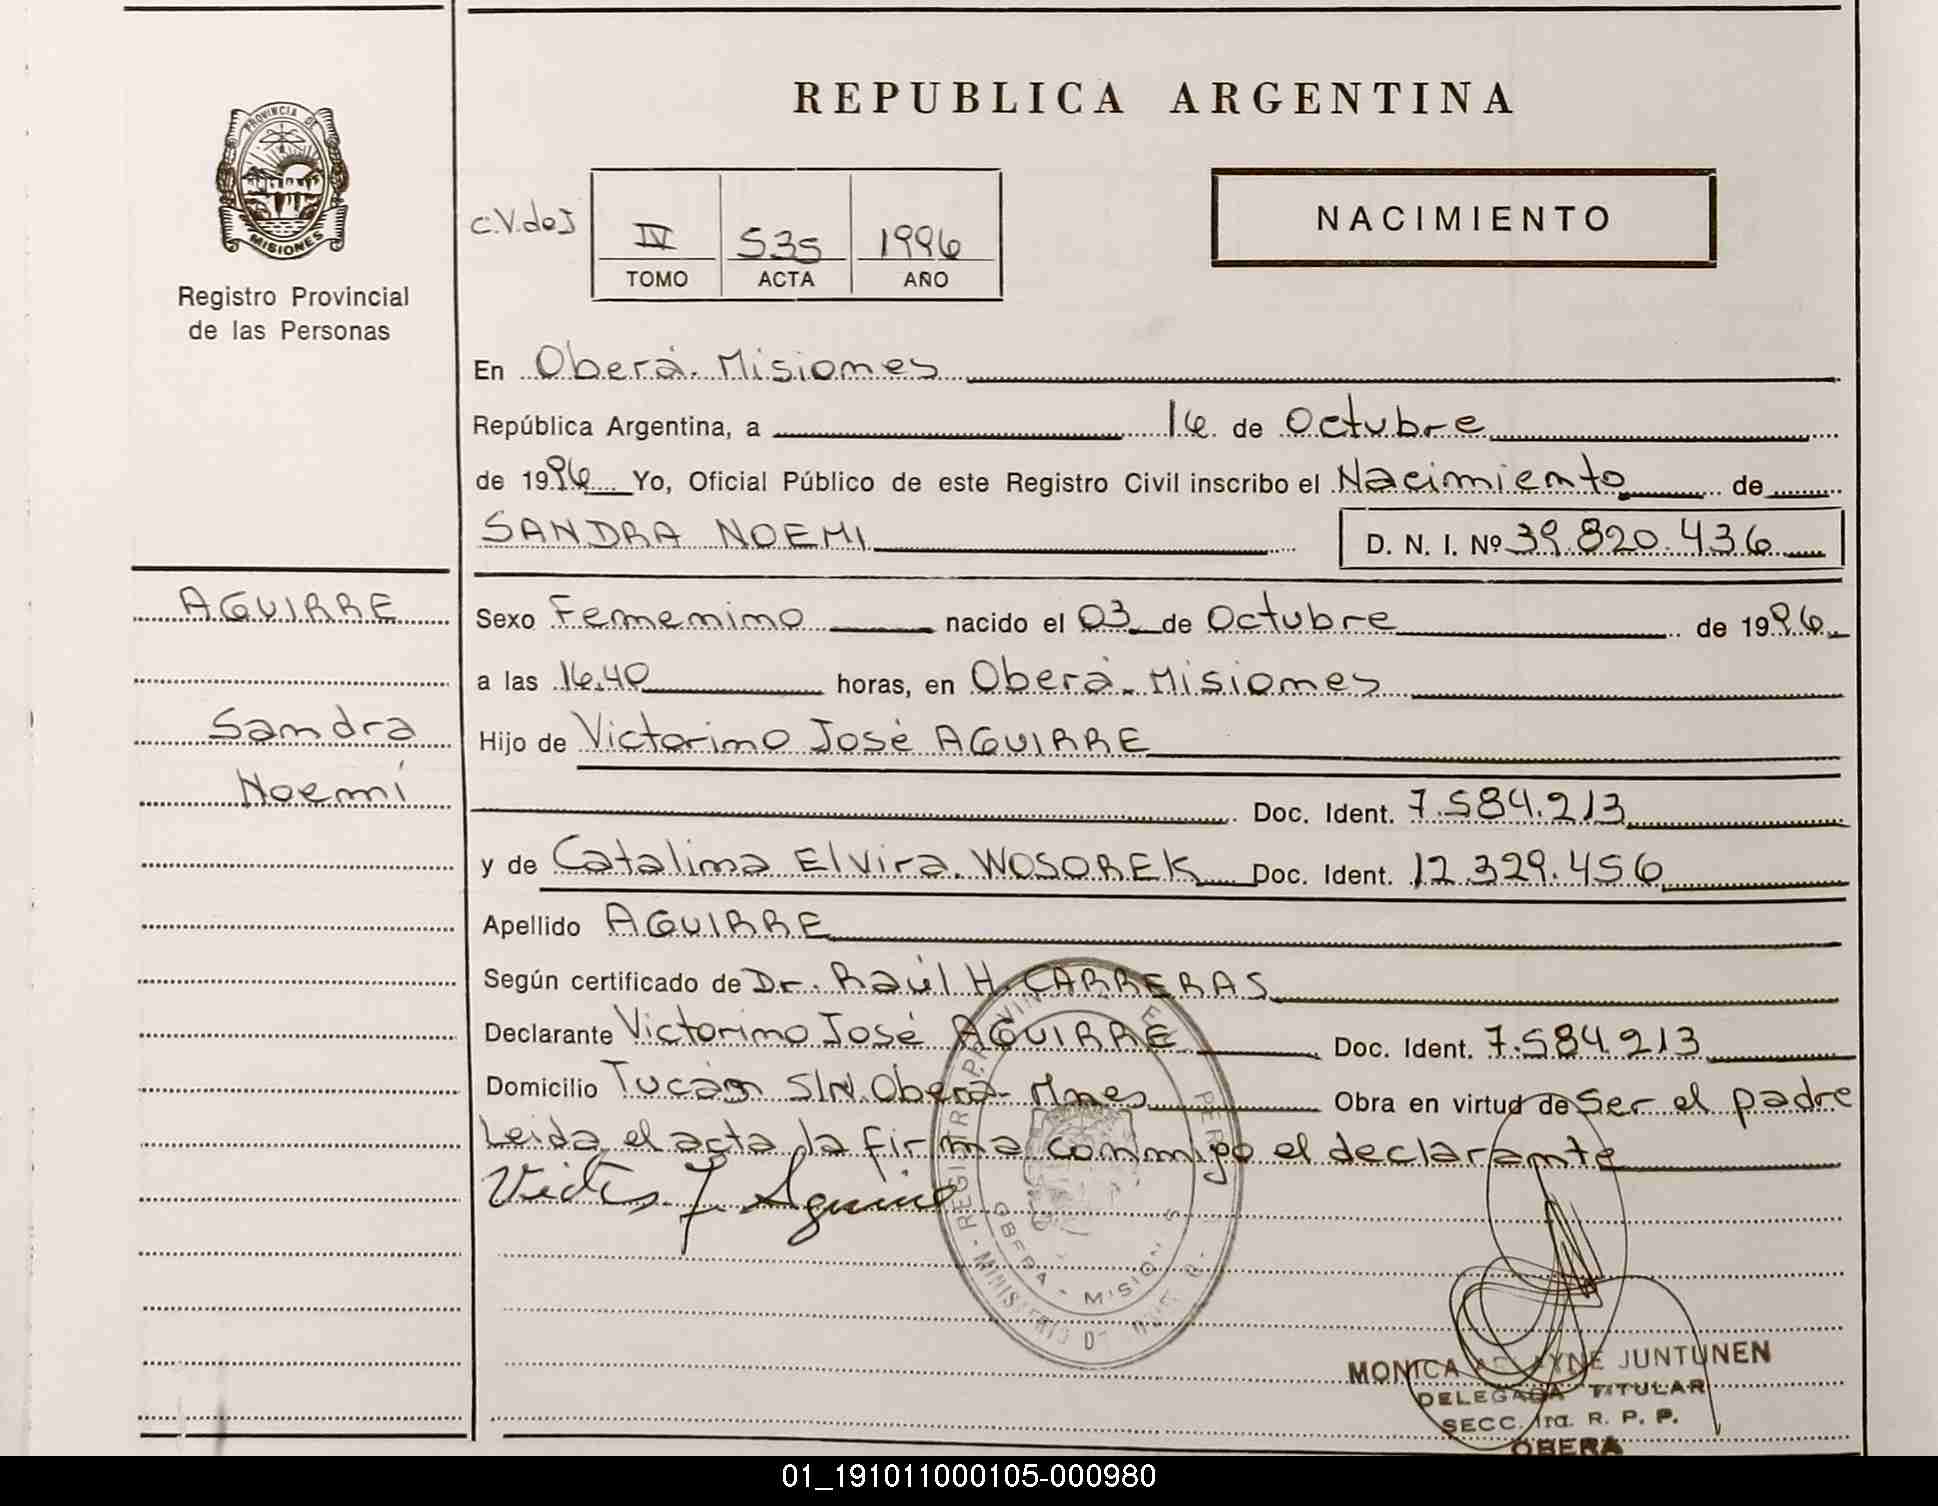 REPUBLICA ARGENTINA
PROVINCIA DE
MISIONES
Registro Provincial
de las Personas
C.V.deJ
IV 535 1996
TOMO ACTA AÑO
NACIMIENTO
En Oberá. Misiones
República Argentina, a 16 de Octubre
de 1996 Yo, Oficial Público de este Registro Civil inscribo el Nacimiento de
SANDRA NOEMI D. N. I. Nº 39.820.436
AGUIRRE
Sandra
Noemí
Sexo Femenino nacido el 03 de Octubre de 1996
a las 16.40 horas, en Oberá. Misiones
Hijo de Victorino José AGUIRRE
Doc. Ident. 7.584.213
y de Catalina Elvira. WOSOREK Doc. Ident. 12.329.456
Apellido AGUIRRE
Según certificado de Dr. Raúl H. CARRERAS
Declarante Victorino José AGUIRRE Doc. Ident. 7.584.213
Domicilio Tucán S/N. Oberá- Mnes Obra en virtud de Ser el padre
Leida el acta la firma conmigo el declarante
OBERA - MISIONES
MONICA JUNTUNEN
DELEGADA TITULAR
SECC. 1ra. R. P. P.
OBERA
01_191011000105-000980